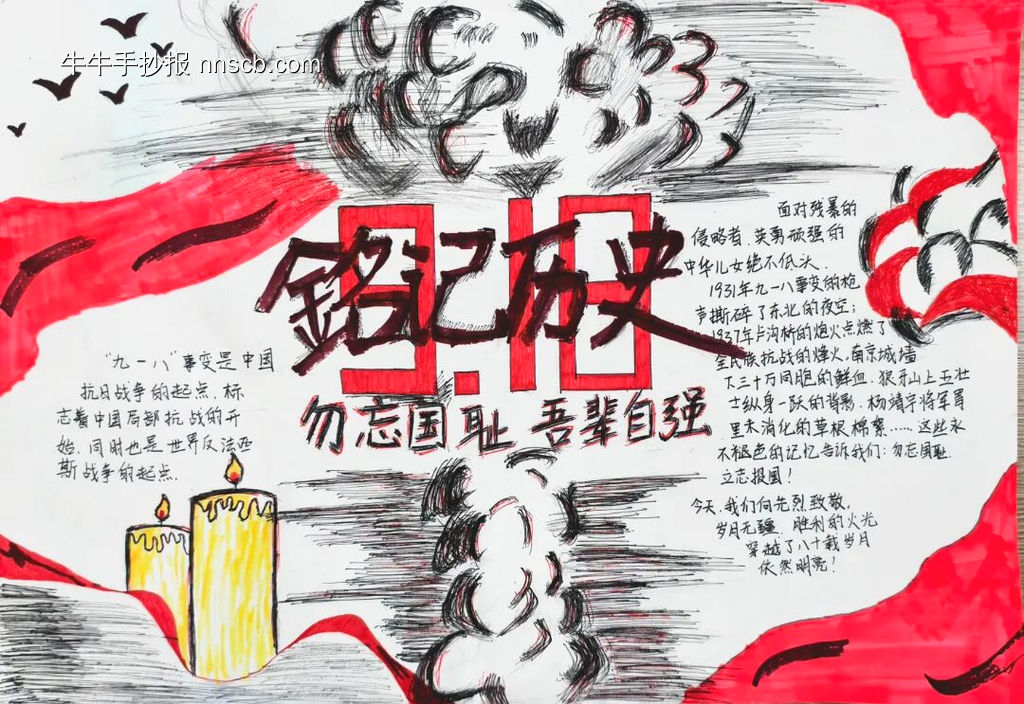 牛牛手抄报 nnscb.com
9.18
銘记历史
勿忘国耻 吾辈自强
"九一八"事变是中国
抗日战争的起点,标
志着中国局部抗战的开
始,同时也是世界反法西
斯战争的起点.
面对残暴的
侵略者,英勇顽强的
中华儿女绝不低头.
1931年九一八事变的枪
声撕碎了东北的夜空;
1937年卢沟桥的炮火点燃了
全民族抗战的烽火,南京城墙
下三十万同胞的鲜血,狼牙山上五壮
士纵身一跃的背影,杨靖宇将军胃
里未消化的草根棉絮……这些永
不褪色的记忆告诉我们:勿忘国耻
立志报国!
今天,我们向先烈致敬,
岁月无疆 胜利的火光
穿越了八十载岁月
依然明亮!